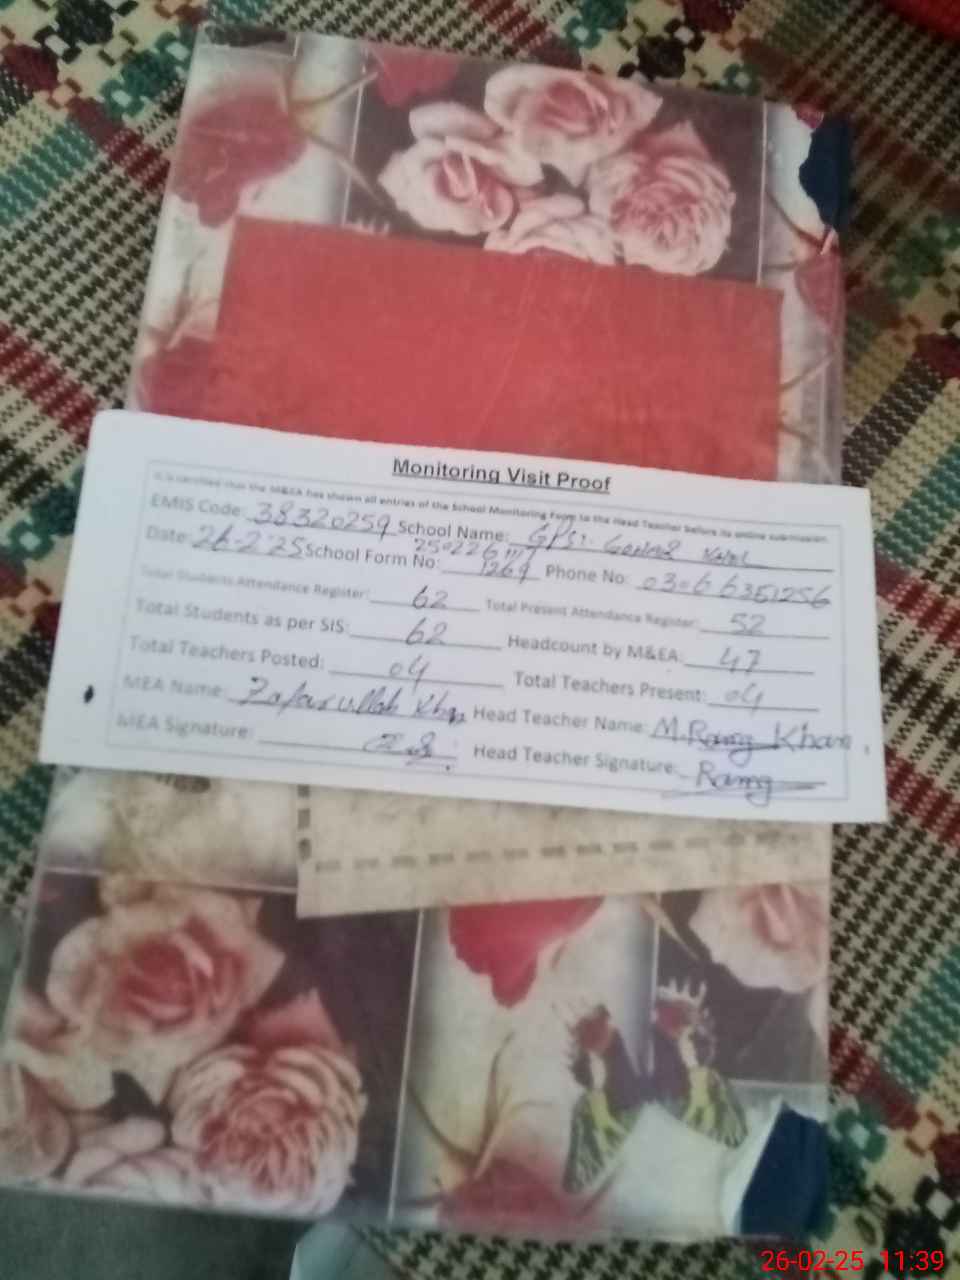 Monitoring Visit Proof
It is certified that the M&EA has shown all entries of the School Monitoring Form to the Head Teacher before its online submission.
EMIS Code: 38320259 School Name: GPS:
Date: 26-2-25 School Form No: 250226 1269 Phone No: 03066351256
Total Students Attendance Register: 62 Total Present Attendance Register: 52
Total Students as per SIS: 62 Headcount by M&EA: 47
Total Teachers Posted: 04 Total Teachers Present: 04
MEA Name: Zafarullah Khan Head Teacher Name: M. Khan
MEA Signature: Head Teacher Signature:
26-02-25 11:39